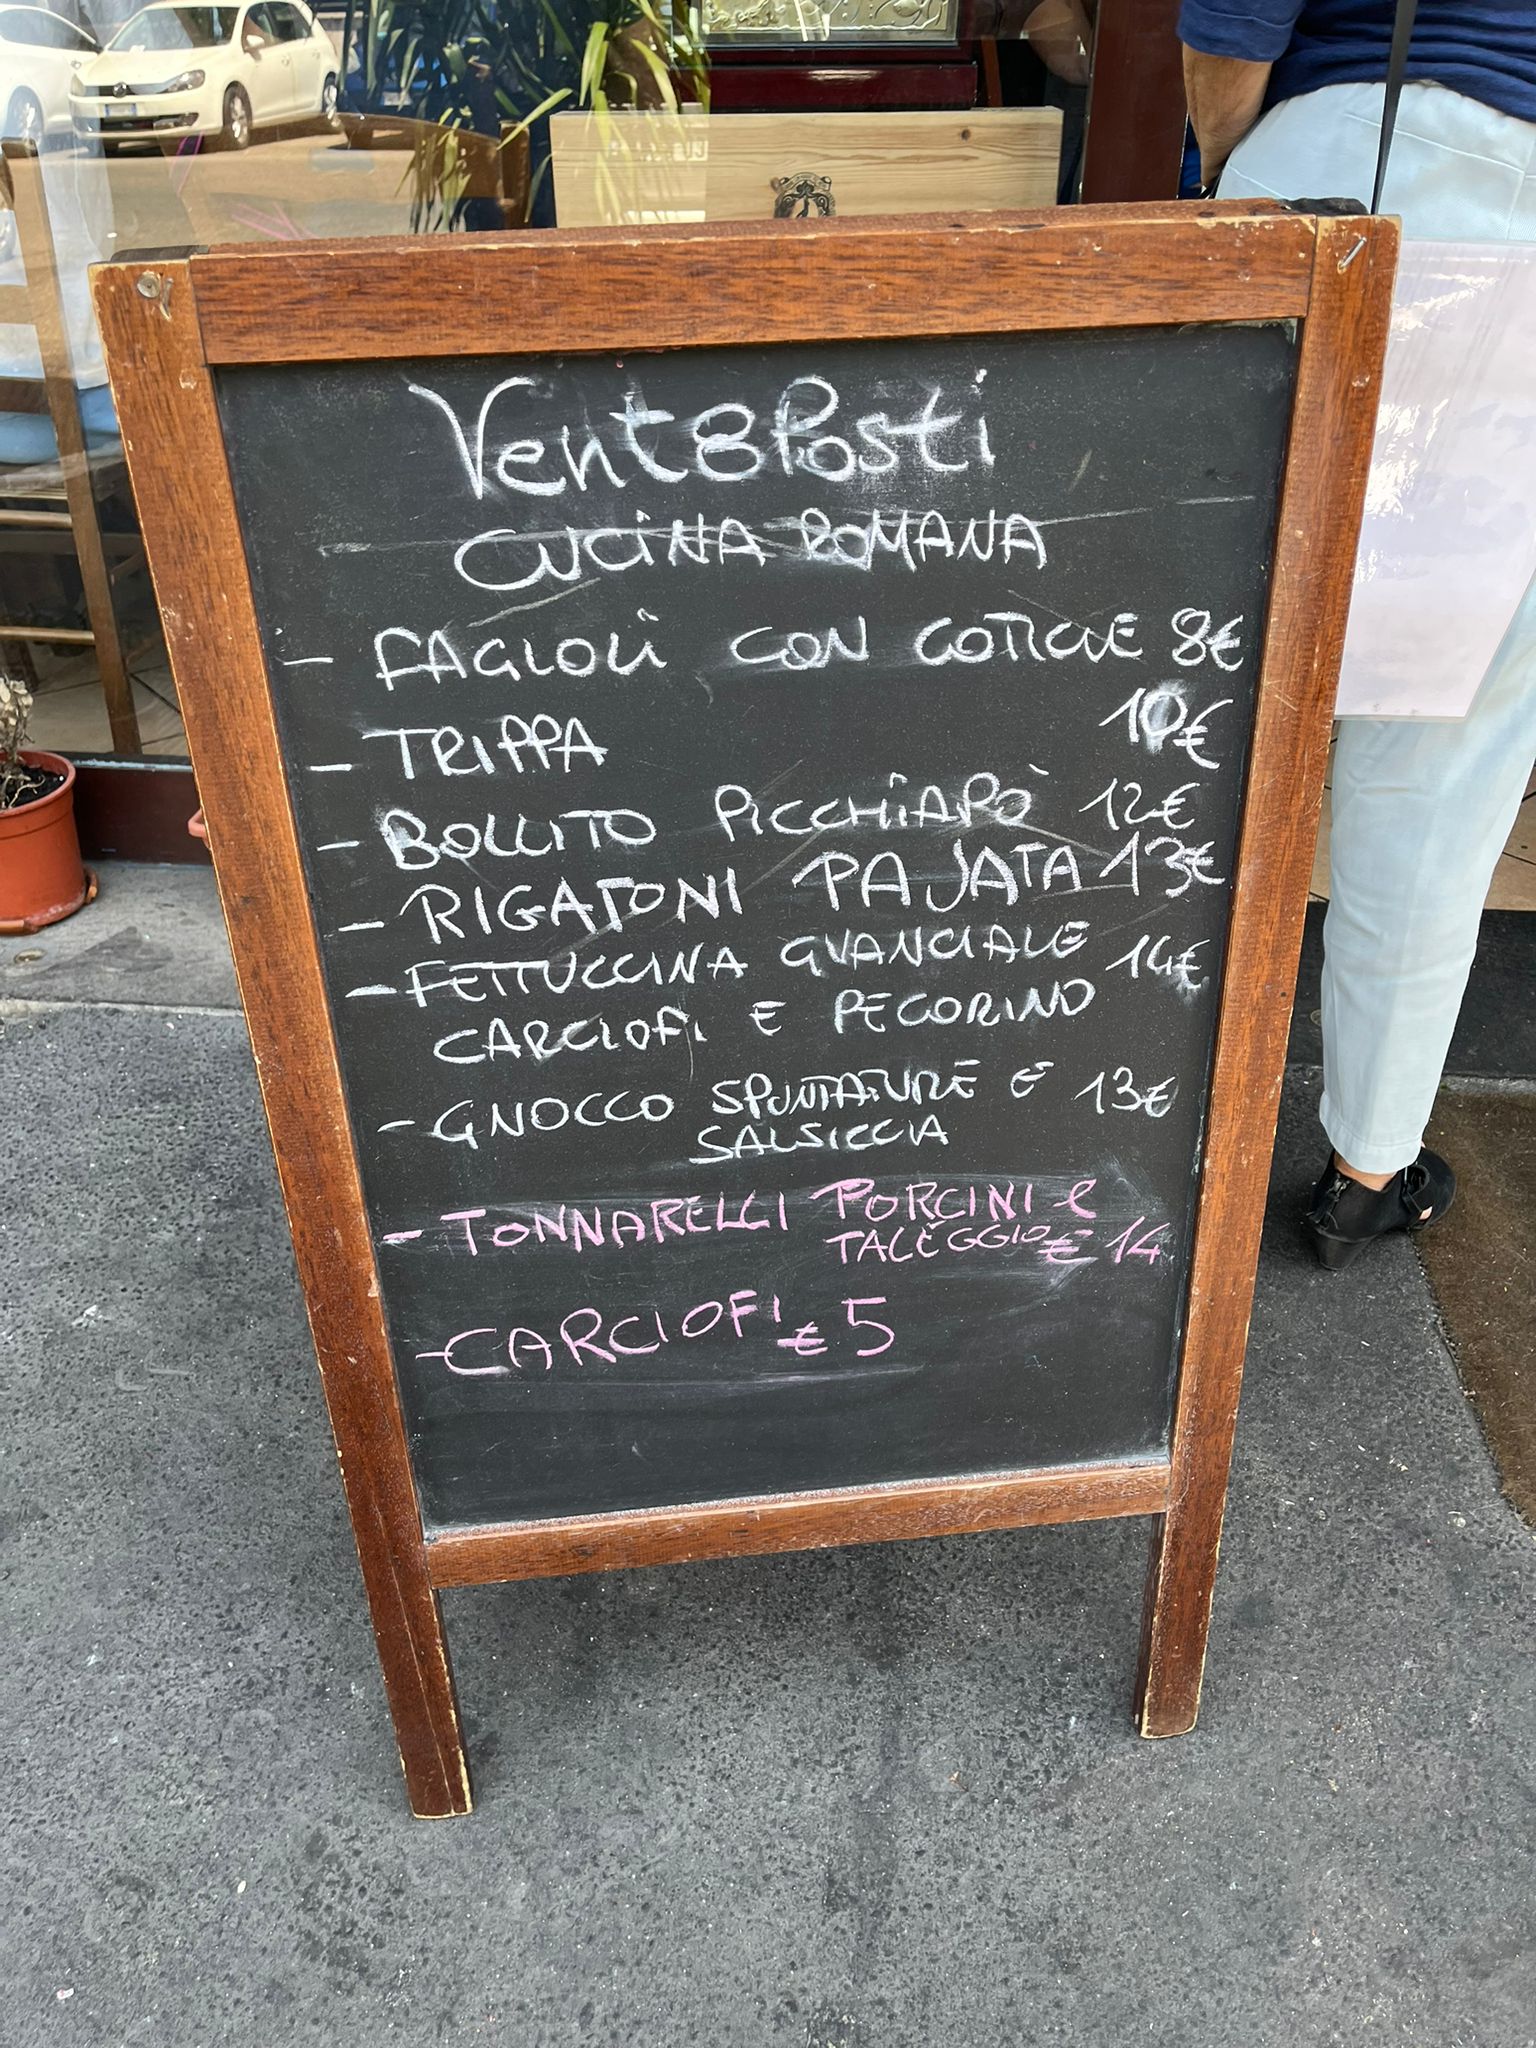 Vent8Posti
CUCINA ROMANA
- FAGIOLI CON COTICHE 8€
- TRIPPA 10€
- BOLLITO PICCHIAPÒ 12€
- RIGATONI PAJATA 13€
- FETTUCCINA GUANCIALE 14€
CARCIOFI E PECORINO
- GNOCCO SPUNTATURE E 13€
SALSICCIA
- TONNARELLI PORCINI e
TALEGGIO € 14
- CARCIOFI € 5